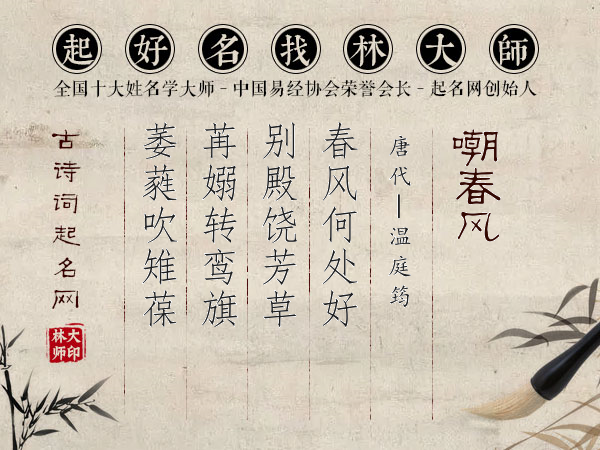 起好名找林大師
全国十大姓名学大师 - 中国易经协会荣誉会长 - 起名网创始人
嘲春风
唐代—温庭筠
春风何处好
别殿饶芳草
苒嫋转鸾旗
萎蕤吹雉葆
古诗词起名网
林师大印